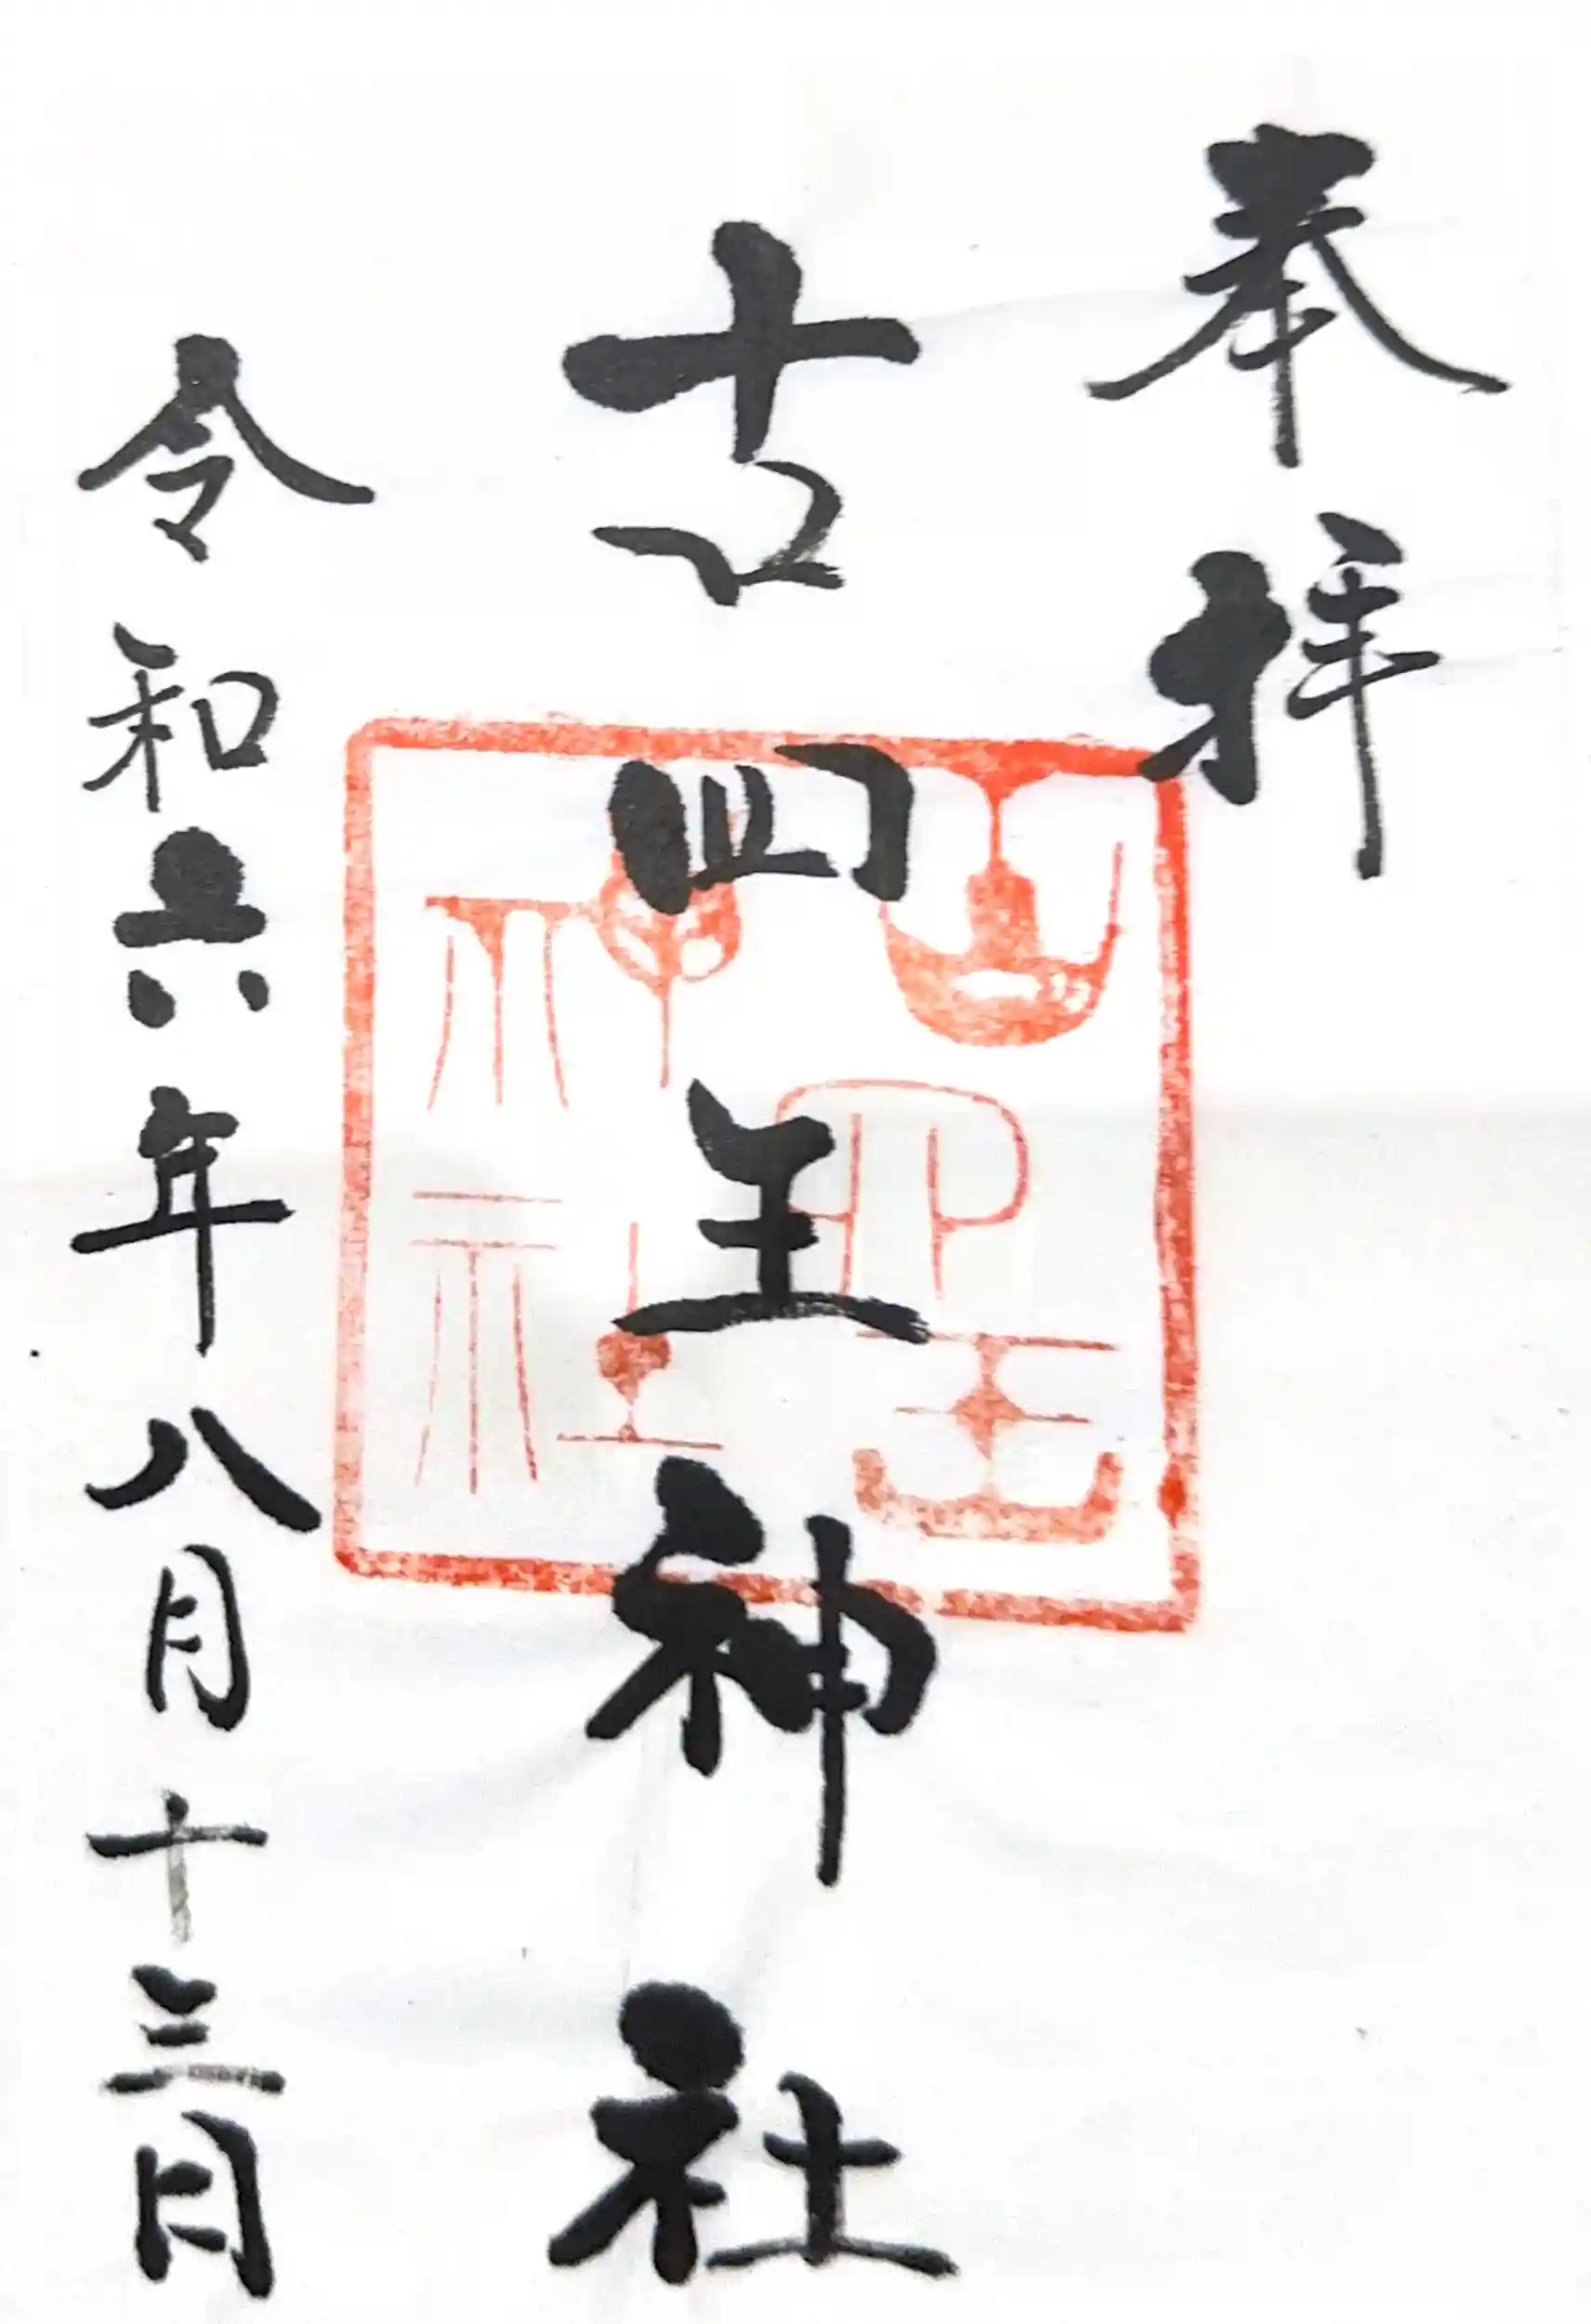 奉拝
古四王神社
令和六年八月十三日
古四王
神社